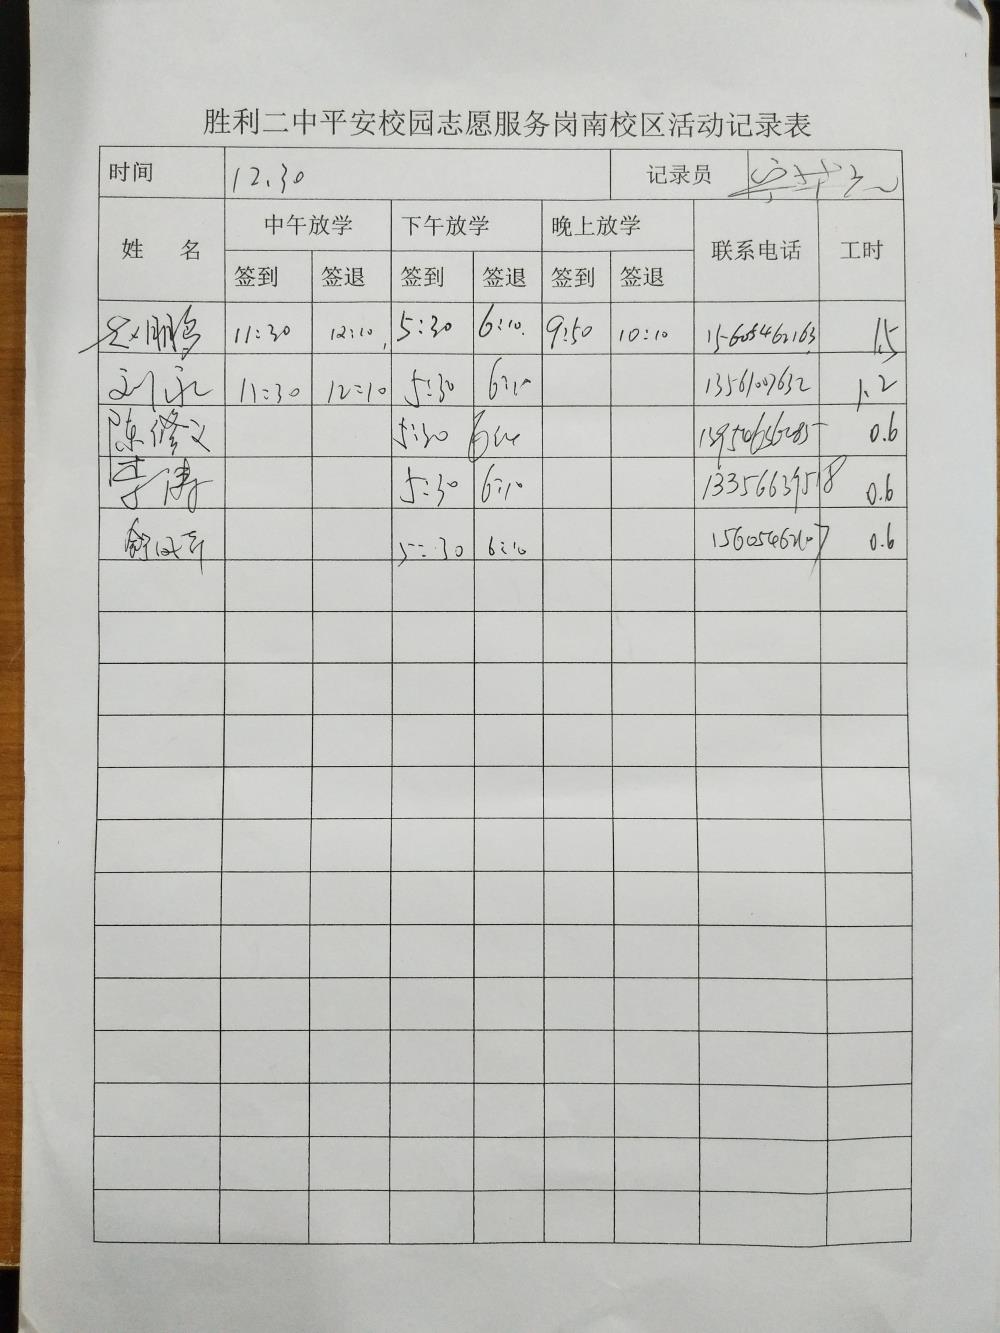 胜利二中平安校园志愿服务岗南校区活动记录表
时间 12.30 记录员
姓 名 中午放学 下午放学 晚上放学 联系电话 工时
签到 签退 签到 签退 签到 签退
赵鹏鸟 11:30 12:10 5:30 6:10 9:50 10:10 15605462163 1.5
刘永 11:30 12:10 5:30 6:10 13561007632 1.2
陈修文 5:30 6:10 0.6
李涛 5:30 6:10 13356639518 0.6
5:30 6:10 0.6